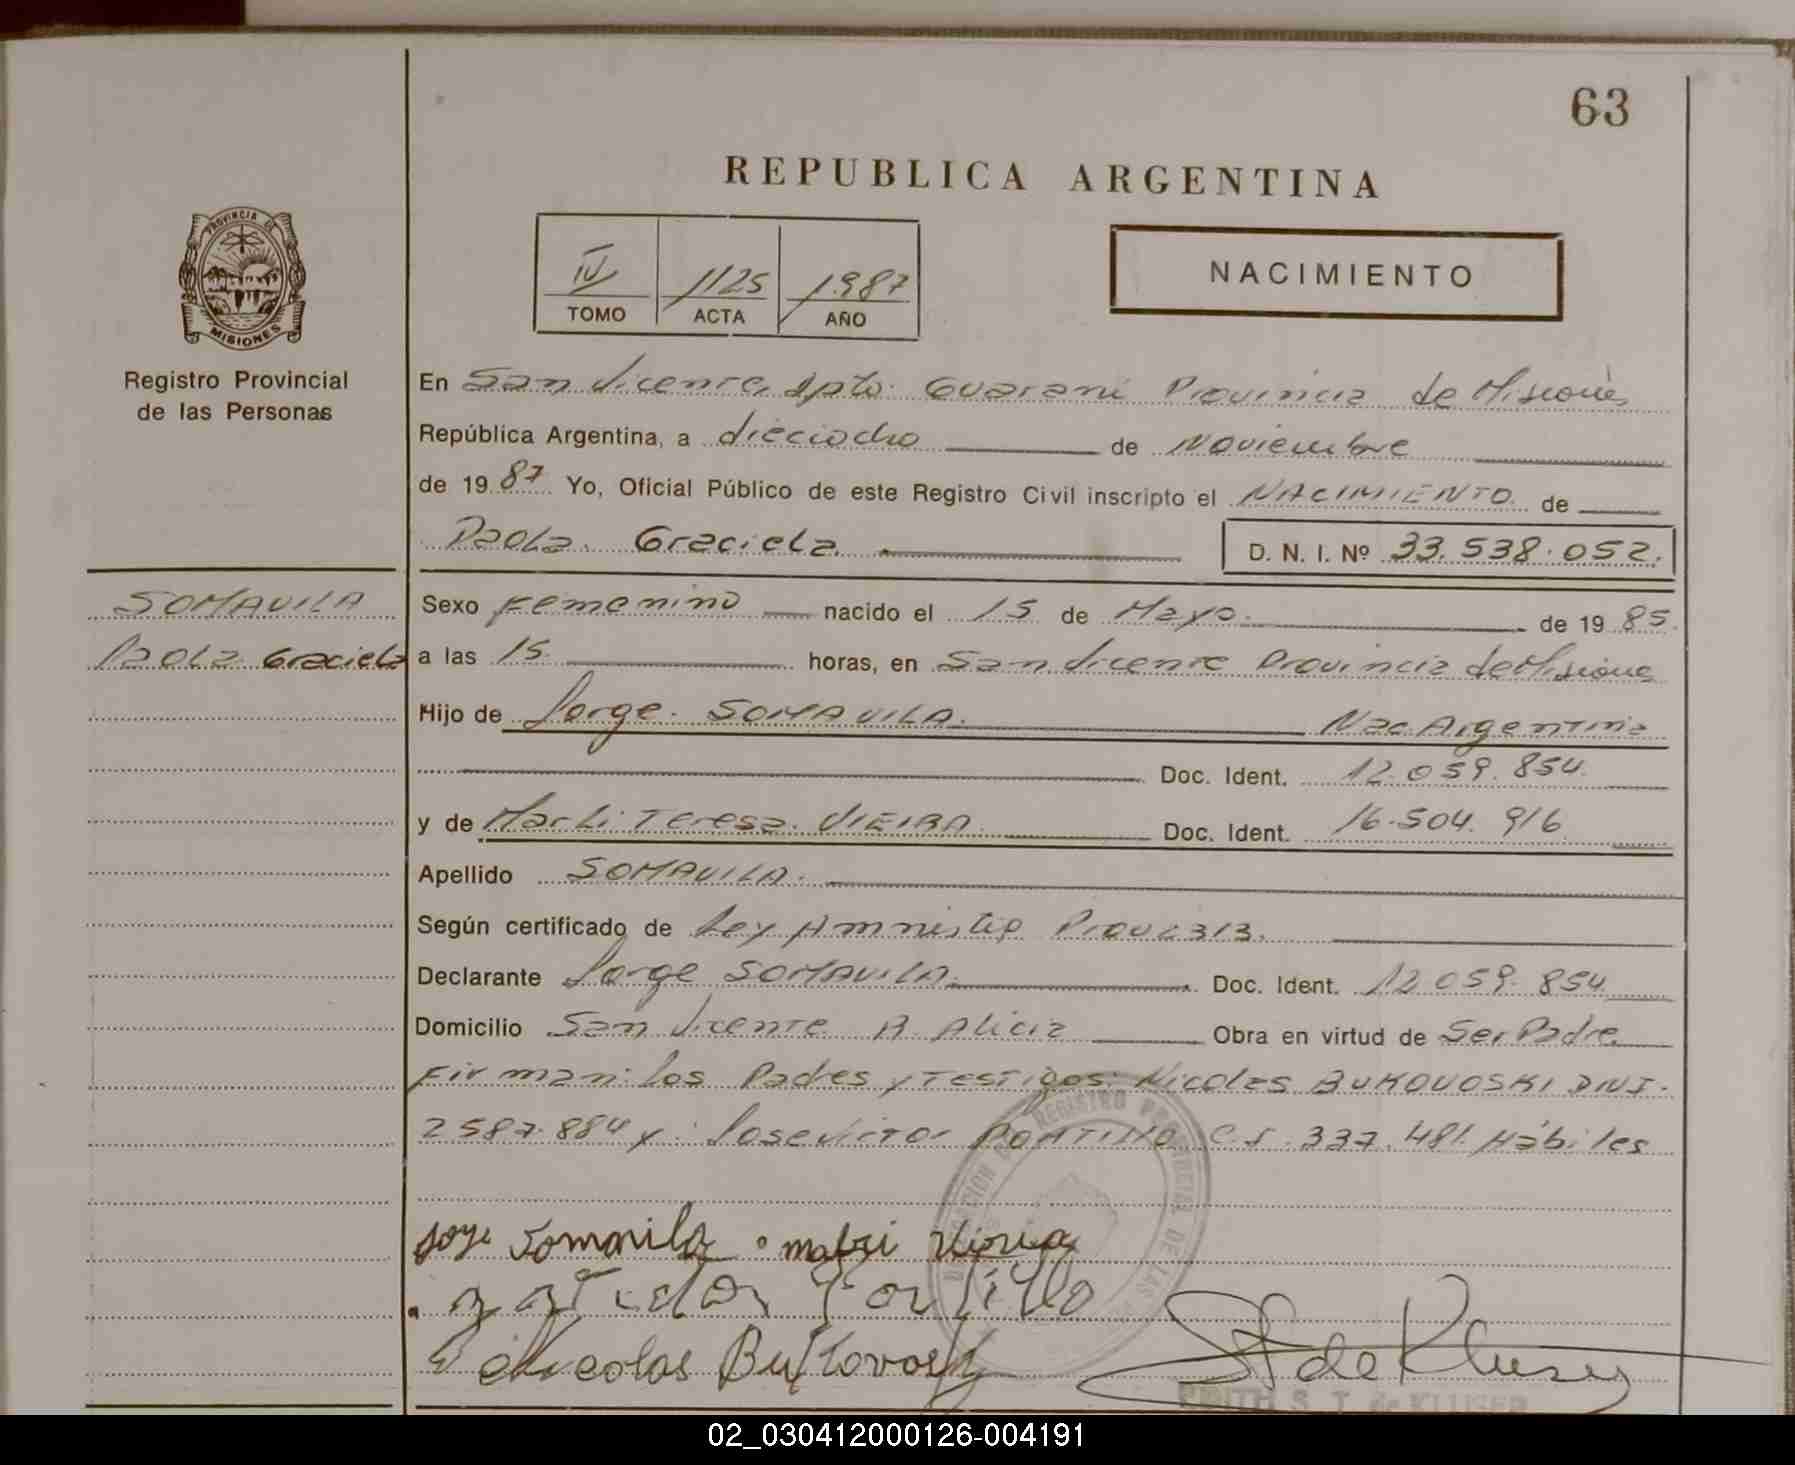 63
REPUBLICA ARGENTINA
PROVINCIA DE
MISIONES
Registro Provincial
de las Personas
IV 1125 1987
TOMO ACTA AÑO
NACIMIENTO
En San Vicente, Dpto. Guarani Provincia de Misiones
República Argentina, a dieciocho de Noviembre
de 19 87 Yo, Oficial Público de este Registro Civil inscripto el NACIMIENTO de
Paola Graciela D. N. I. Nº 33.538.052.
SOMAVILA
Paola Graciela
Sexo Femenino nacido el 15 de Mayo de 19 85.
a las 15 horas, en San Vicente Provincia de Misiones
Hijo de Jorge SOMAVILA. Nac. Argentina
Doc. Ident. 12.059.854.
y de Marli Teresa VIEIRA Doc. Ident. 16.504.916
Apellido SOMAVILA.
Según certificado de Ley Amnistia
Declarante Jorge SOMAVILA. Doc. Ident. 12.059.854
Domicilio San Vicente B. Alicia Obra en virtud de Ser Padre
Firman: los Padres y Testigos: Nicolas BUKOVOSKI DNI.
2587.884 y: Jose Victor PORTILLO C.I. 337.481. Hábiles
REGISTRO PROVINCIAL DE LAS
Jorge Somavila
Portillo
Nicolas
de Kluser
EDITH S. T. de KLUSER
02_030412000126-004191